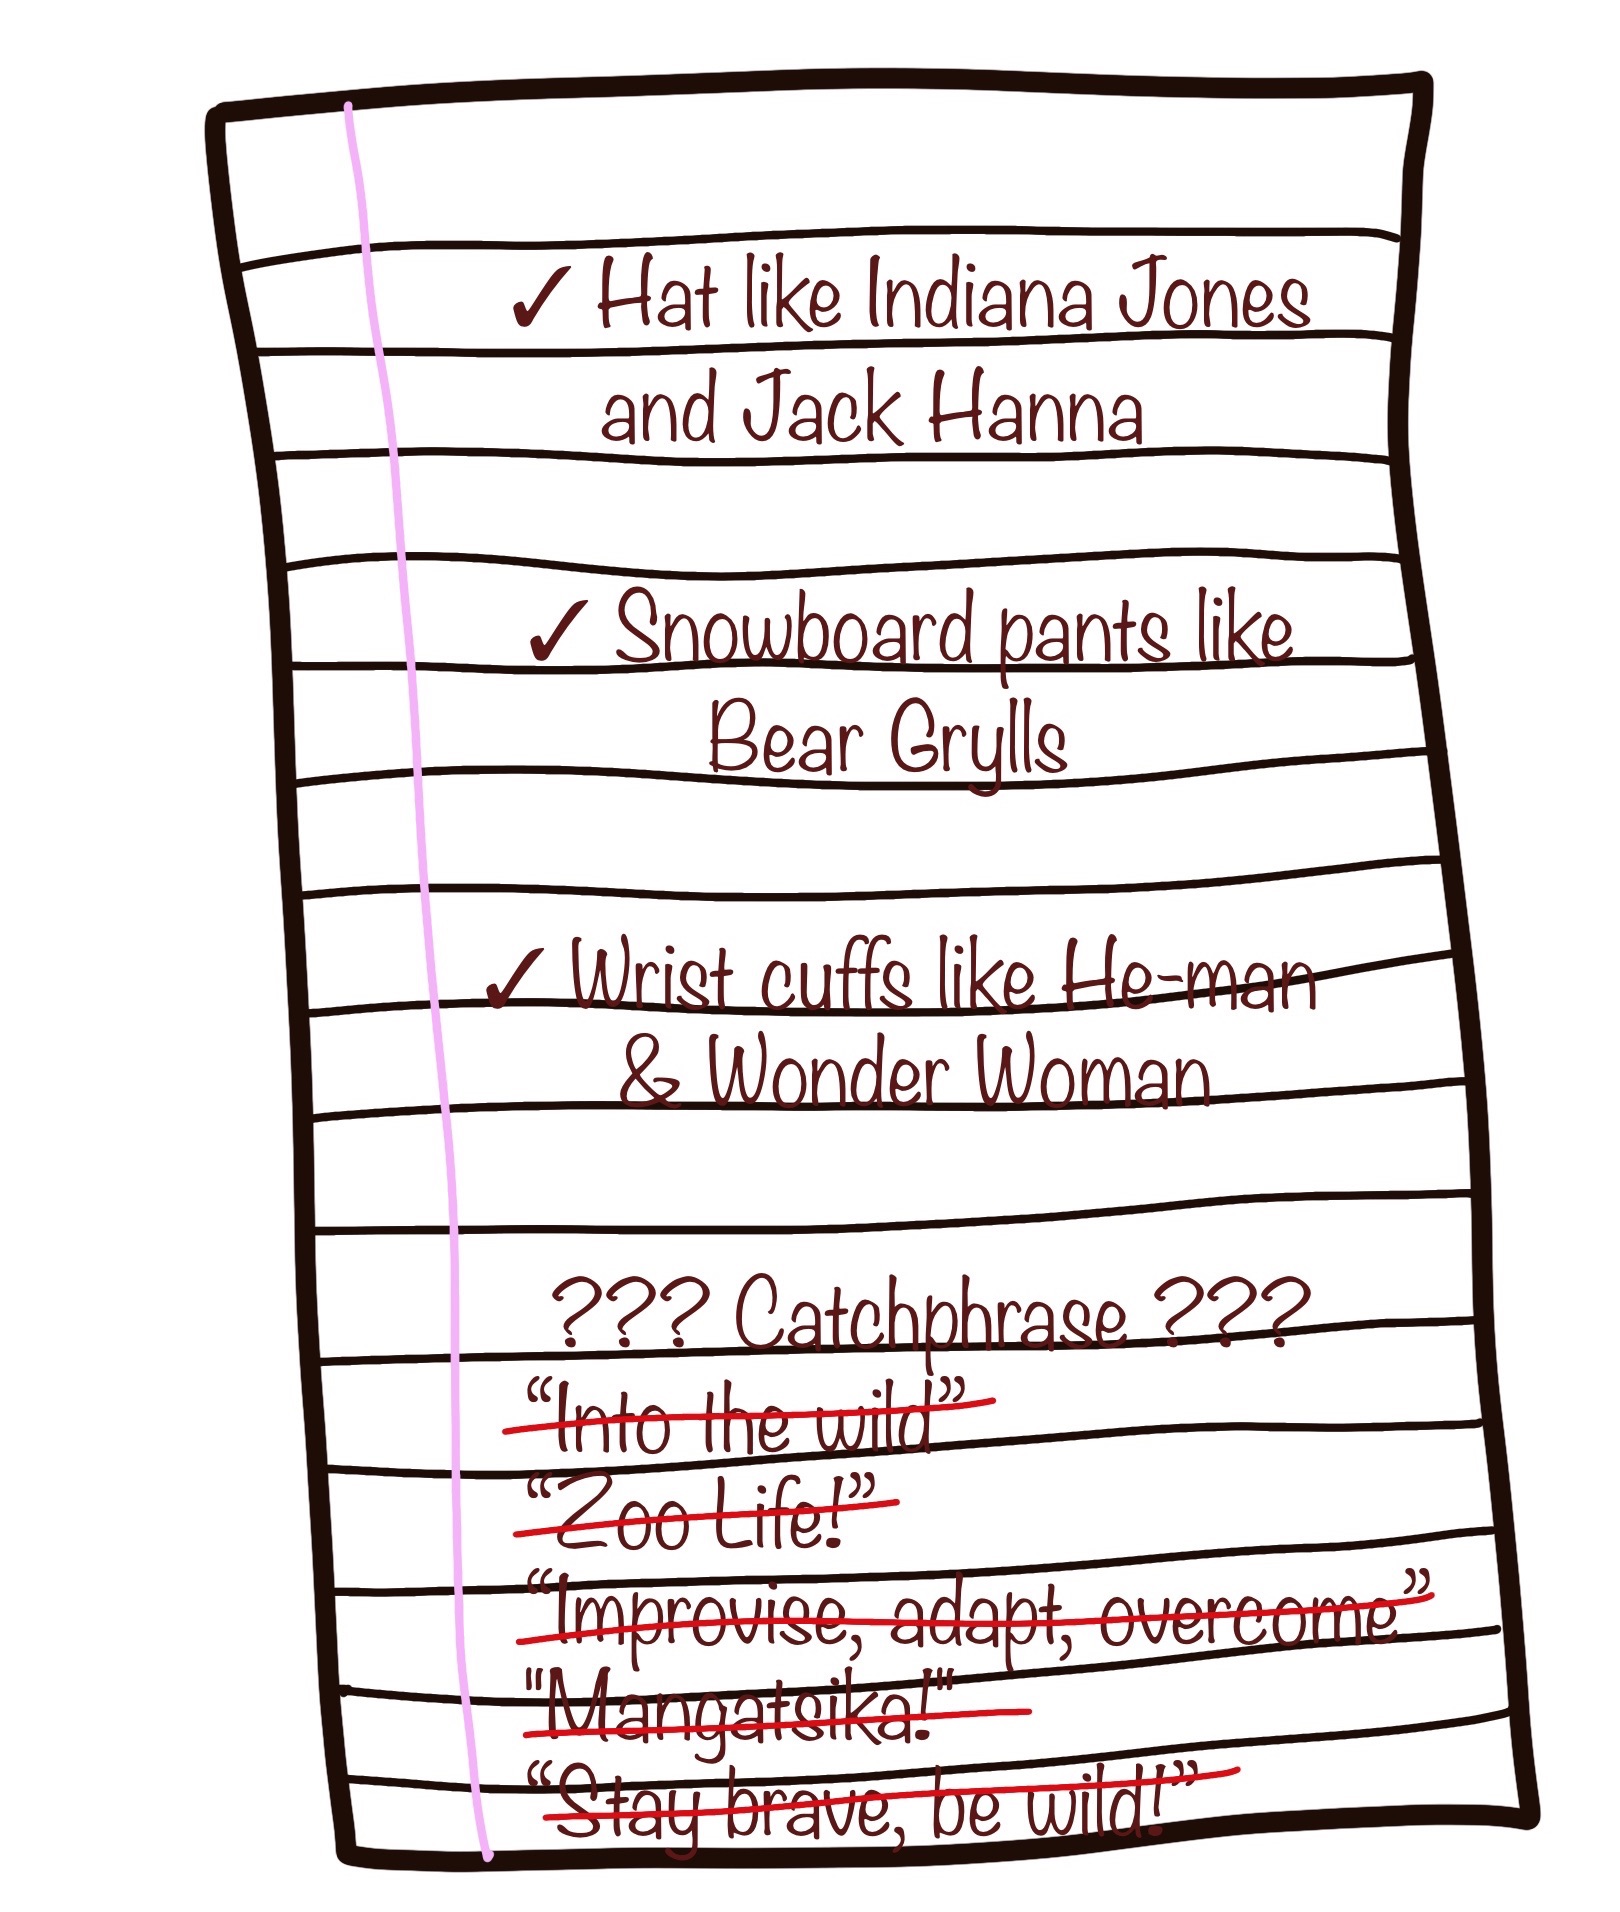 ✓ Hat like Indiana Jones
and Jack Hanna
✓ Snowboard pants like
Bear Grylls
✓ Wrist cuffs like He-man
& Wonder Woman
??? Catchphrase ???
“Into the wild”
“Zoo Life!”
“Improvise, adapt, overcome”
"Mangatsika!"
“Stay brave, be wild!”